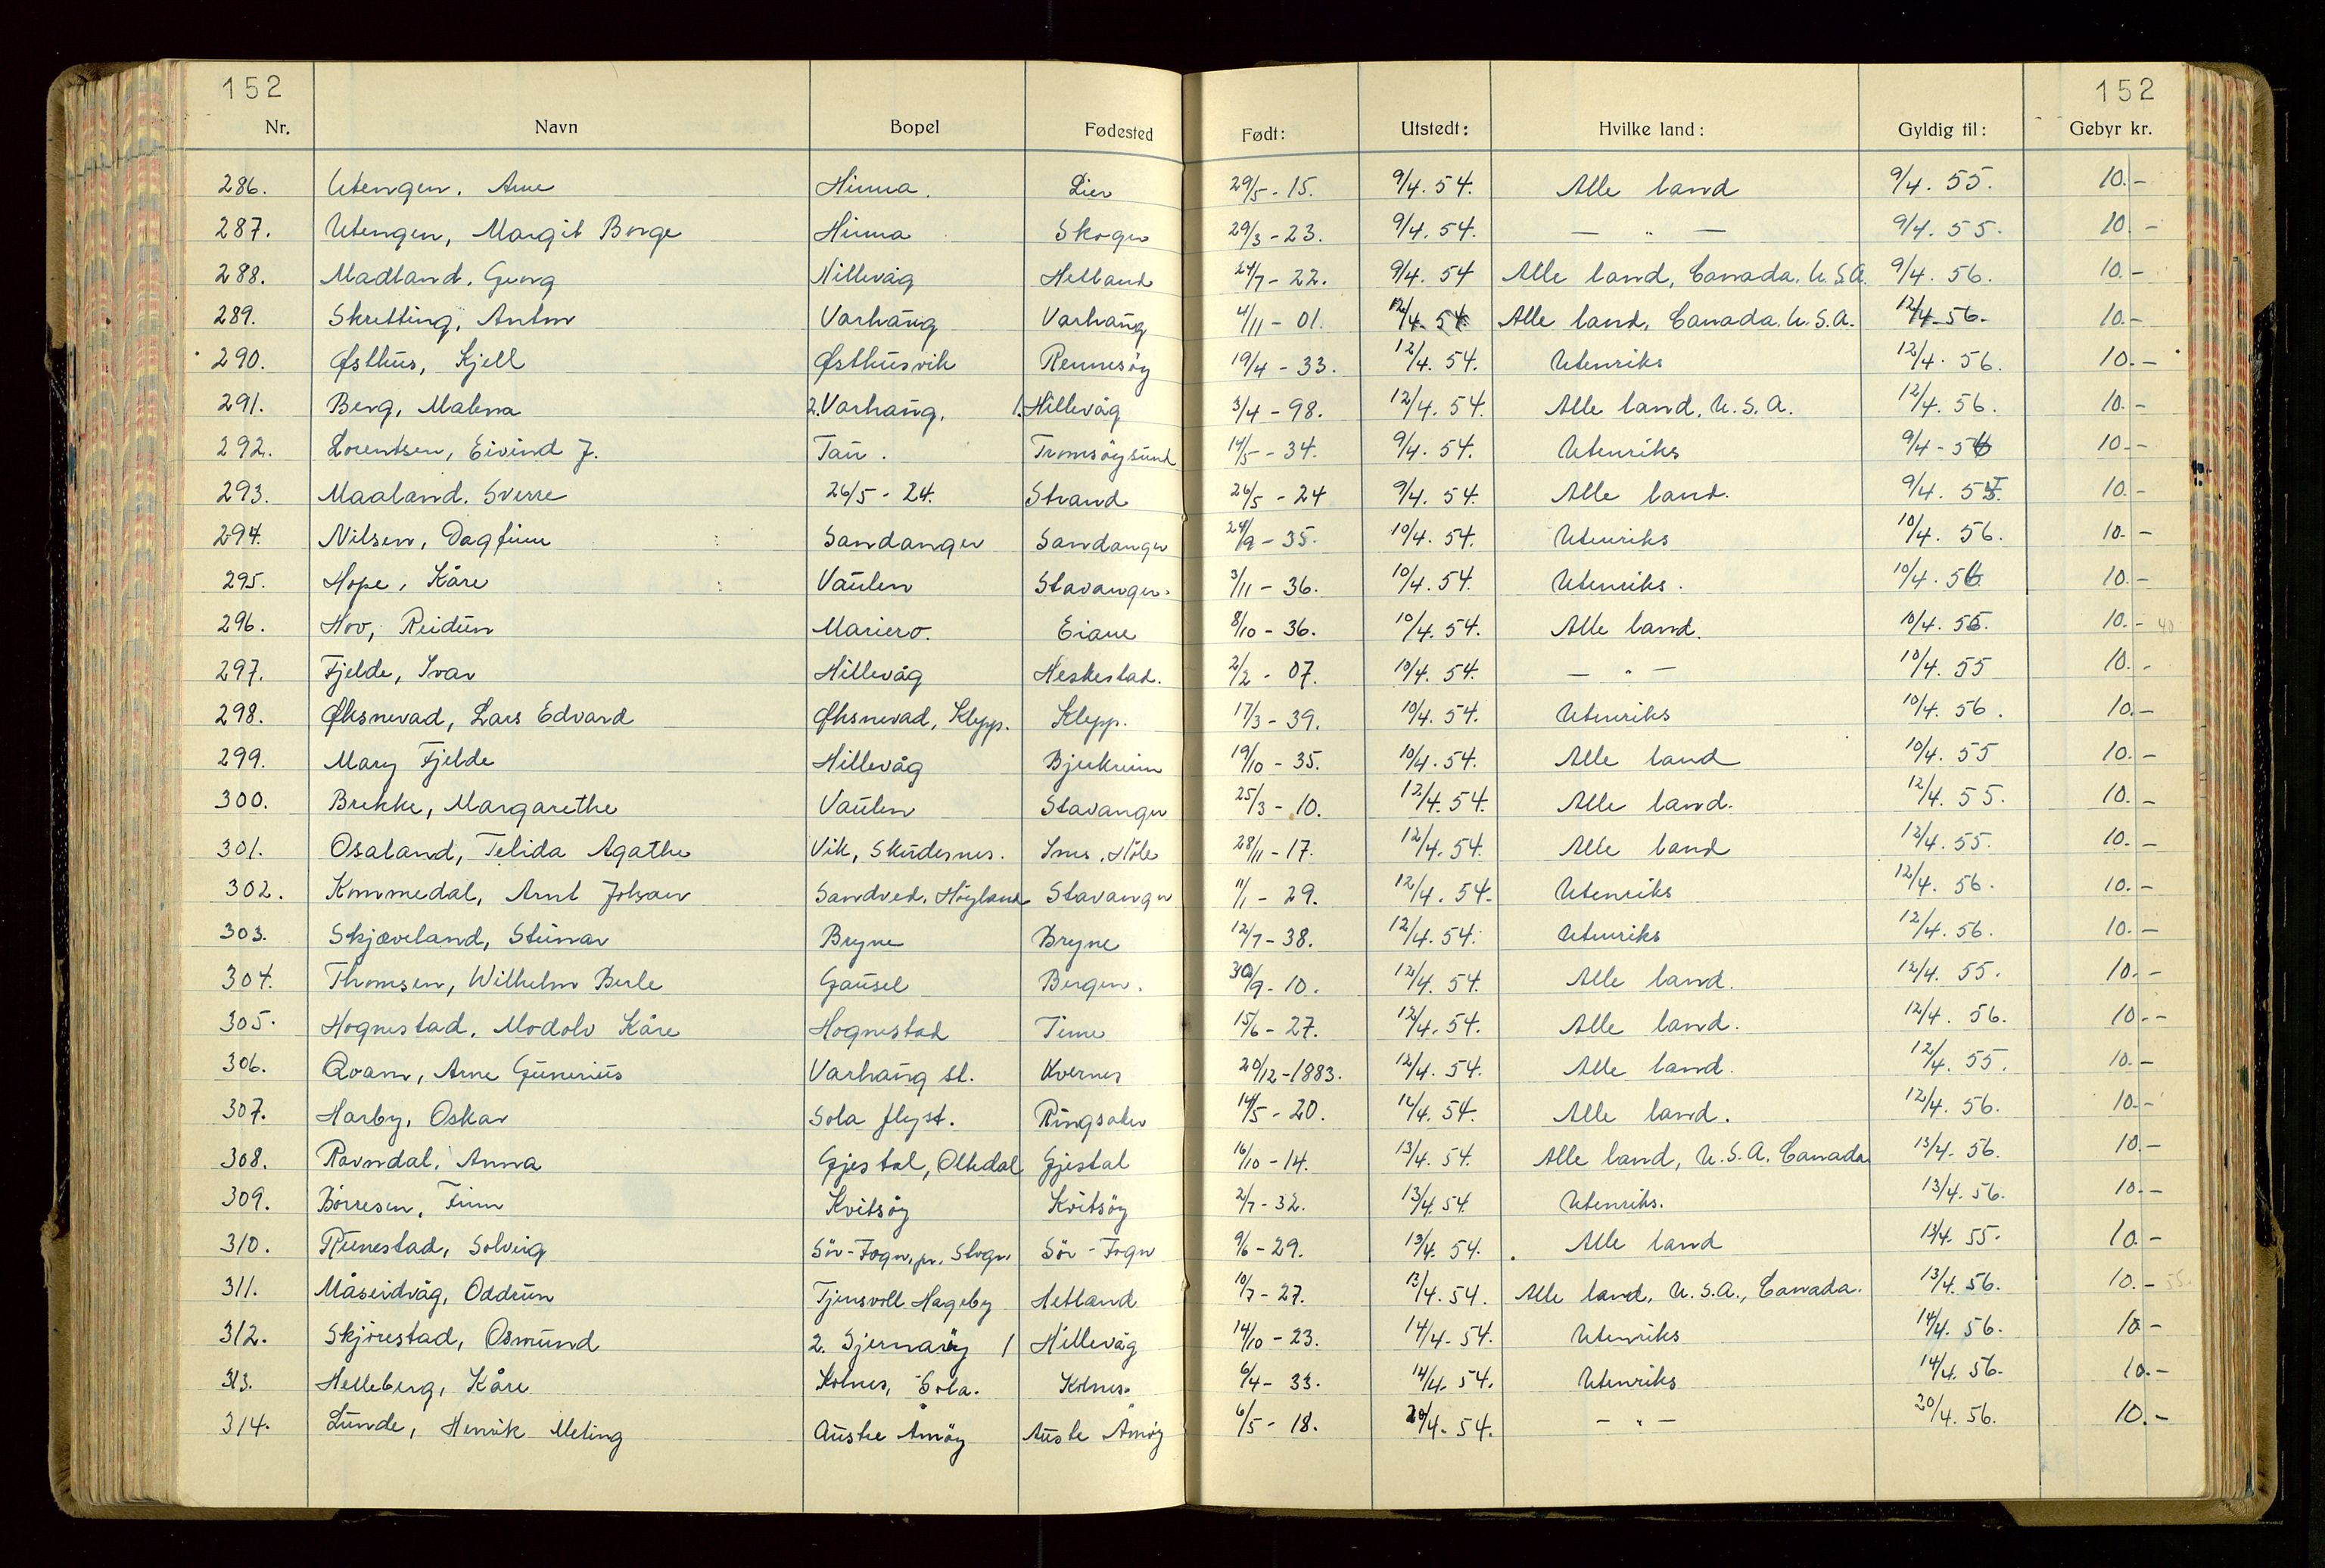 152 152
Nr. Navn Bopel Fødested Født: Utstedt: Hvilke land: Gyldig til: Gebyr kr.
286. Utengen, Arne Hinna. Lier 29/5 - 15. 9/4. 54. Alle land 9/4. 55. 10.-
287. Utengen, Margit Borge Hinna Skoger 29/3 - 23. 9/4. 54. — " — 9/4. 55. 10.-
288. Madland, Georg Hillevåg Hetland 24/7 - 22. 9/4. 54 Alle land, Canada. U.S.A. 9/4. 56. 10.-
289. Skretting, Anton Varhaug Varhaug 4/11 - 01. 12/4. 54. Alle land, Canada. U.S.A. 12/4. 56. 10.-
290. Østhus, Kjell Østhusvik Rennesöy 19/4 - 33. 12/4. 54. Utenriks 12/4. 56. 10.-
291. Berg, Malena 2. Varhaug, 1. Hillevåg 3/4 - 98. 12/4. 54. Alle land, U.S.A. 12/4. 56. 10.-
292. Lorentsen, Eivind J. Tau. Tromsöysund 14/5 - 34. 9/4. 54. Utenriks 9/4 - 56 10.-
293. Maaland, Sverre 26/5 - 24. Strand 26/5 - 24 9/4. 54. Alle land. 9/4. 55. 10.-
294. Nilsen, Dagfinn Sandanger Sandanger 24/9 - 35. 10/4. 54. Utenriks 10/4. 56. 10.-
295. Hope, Kåre Vaulen Stavanger. 3/11 - 36. 10/4. 54. Utenriks. 10/4. 56 10.-
296. Hov, Reidun Mariero. Eiane 8/10 - 36. 10/4. 54. Alle land. 10/4. 56. 10.- 40
297. Fjelde, Ivar Hillevåg Heskestad. 2/2 - 07. 10/4. 54. — " — 10/4. 55 10.-
298. Øksnevad, Lars Edvard Øksnevad, Klepp. Klepp. 17/3 - 39. 10/4. 54. Utenriks 10/4. 56. 10.-
299. Mary Fjelde Hillevåg Bjerkreim 19/10 - 35. 10/4. 54. Alle land 10/4. 55 10.-
300. Brekke, Margarethe Vaulen Stavanger 25/3 - 10. 12/4. 54. Alle land. 12/4. 55. 10.-
301. Osaland, Telida Agathe Vik, Skudesnes. Ims, Höle 28/11 - 17. 12/4. 54. Alle land 12/4. 55. 10.-
302. Kommedal, Arnt Johan Sandved, Höyland Stavanger 11/1 - 29. 12/4. 54. Utenriks 12/4. 56. 10.-
303. Skjæveland, Steinar Bryne Bryne 12/7 - 38. 12/4. 54. Utenriks 12/4. 56. 10.-
304. Thomsen, Wilhelm Berle Gausel Bergen. 30/9 - 10. 12/4. 54. Alle land. 12/4. 55. 10.-
305. Hognestad, Modolv Kåre Hognestad Time 15/6 - 27. 12/4. 54. Alle land. 12/4. 56. 10.-
306. Qvam, Arne Gunerius Varhaug st. Kvernes 20/12 - 1883. 12/4. 54. Alle land. 12/4. 55. 10.-
307. Harby, Oskar Sola flyst. Ringsaker 14/5 - 20. 12/4. 54. Alle land. 12/4. 56. 10.-
308. Ravndal, Anna Gjestal, Oltedal Gjestal 16/10 - 14. 13/4. 54. Alle land, U.S.A. Canada 13/4. 56. 10.-
309. Börresen, Finn Kvitsöy Kvitsöy 2/7 - 32. 13/4. 54 Utenriks. 13/4. 56. 10.-
310. Runestad, Solveig Sör-Fogn, pr. Stvgr. Sör-Fogn 9/6 - 29. 13/4. 54. Alle land 13/4. 55. 10.-
311. Måseidvåg, Oddrun Tjensvoll Hageby Hetland 10/7 - 27. 13/4. 54. Alle land, U.S.A., Canada. 13/4. 56. 10.-
312. Skjörestad, Osmund 2. Sjernaröy 1 Hillevåg 14/10 - 23. 14/4. 54. Utenriks 14/4. 56. 10.-
313. Helleberg, Kåre Kolnes, Sola. Kolnes. 6/4 - 33. 14/4. 54. Utenriks 14/4. 56. 10.-
314. Lunde, Henrik Meling Austre Åmöy Austre Åmöy 6/5 - 18. 20/4. 54. — " — 20/4. 56. 10.-